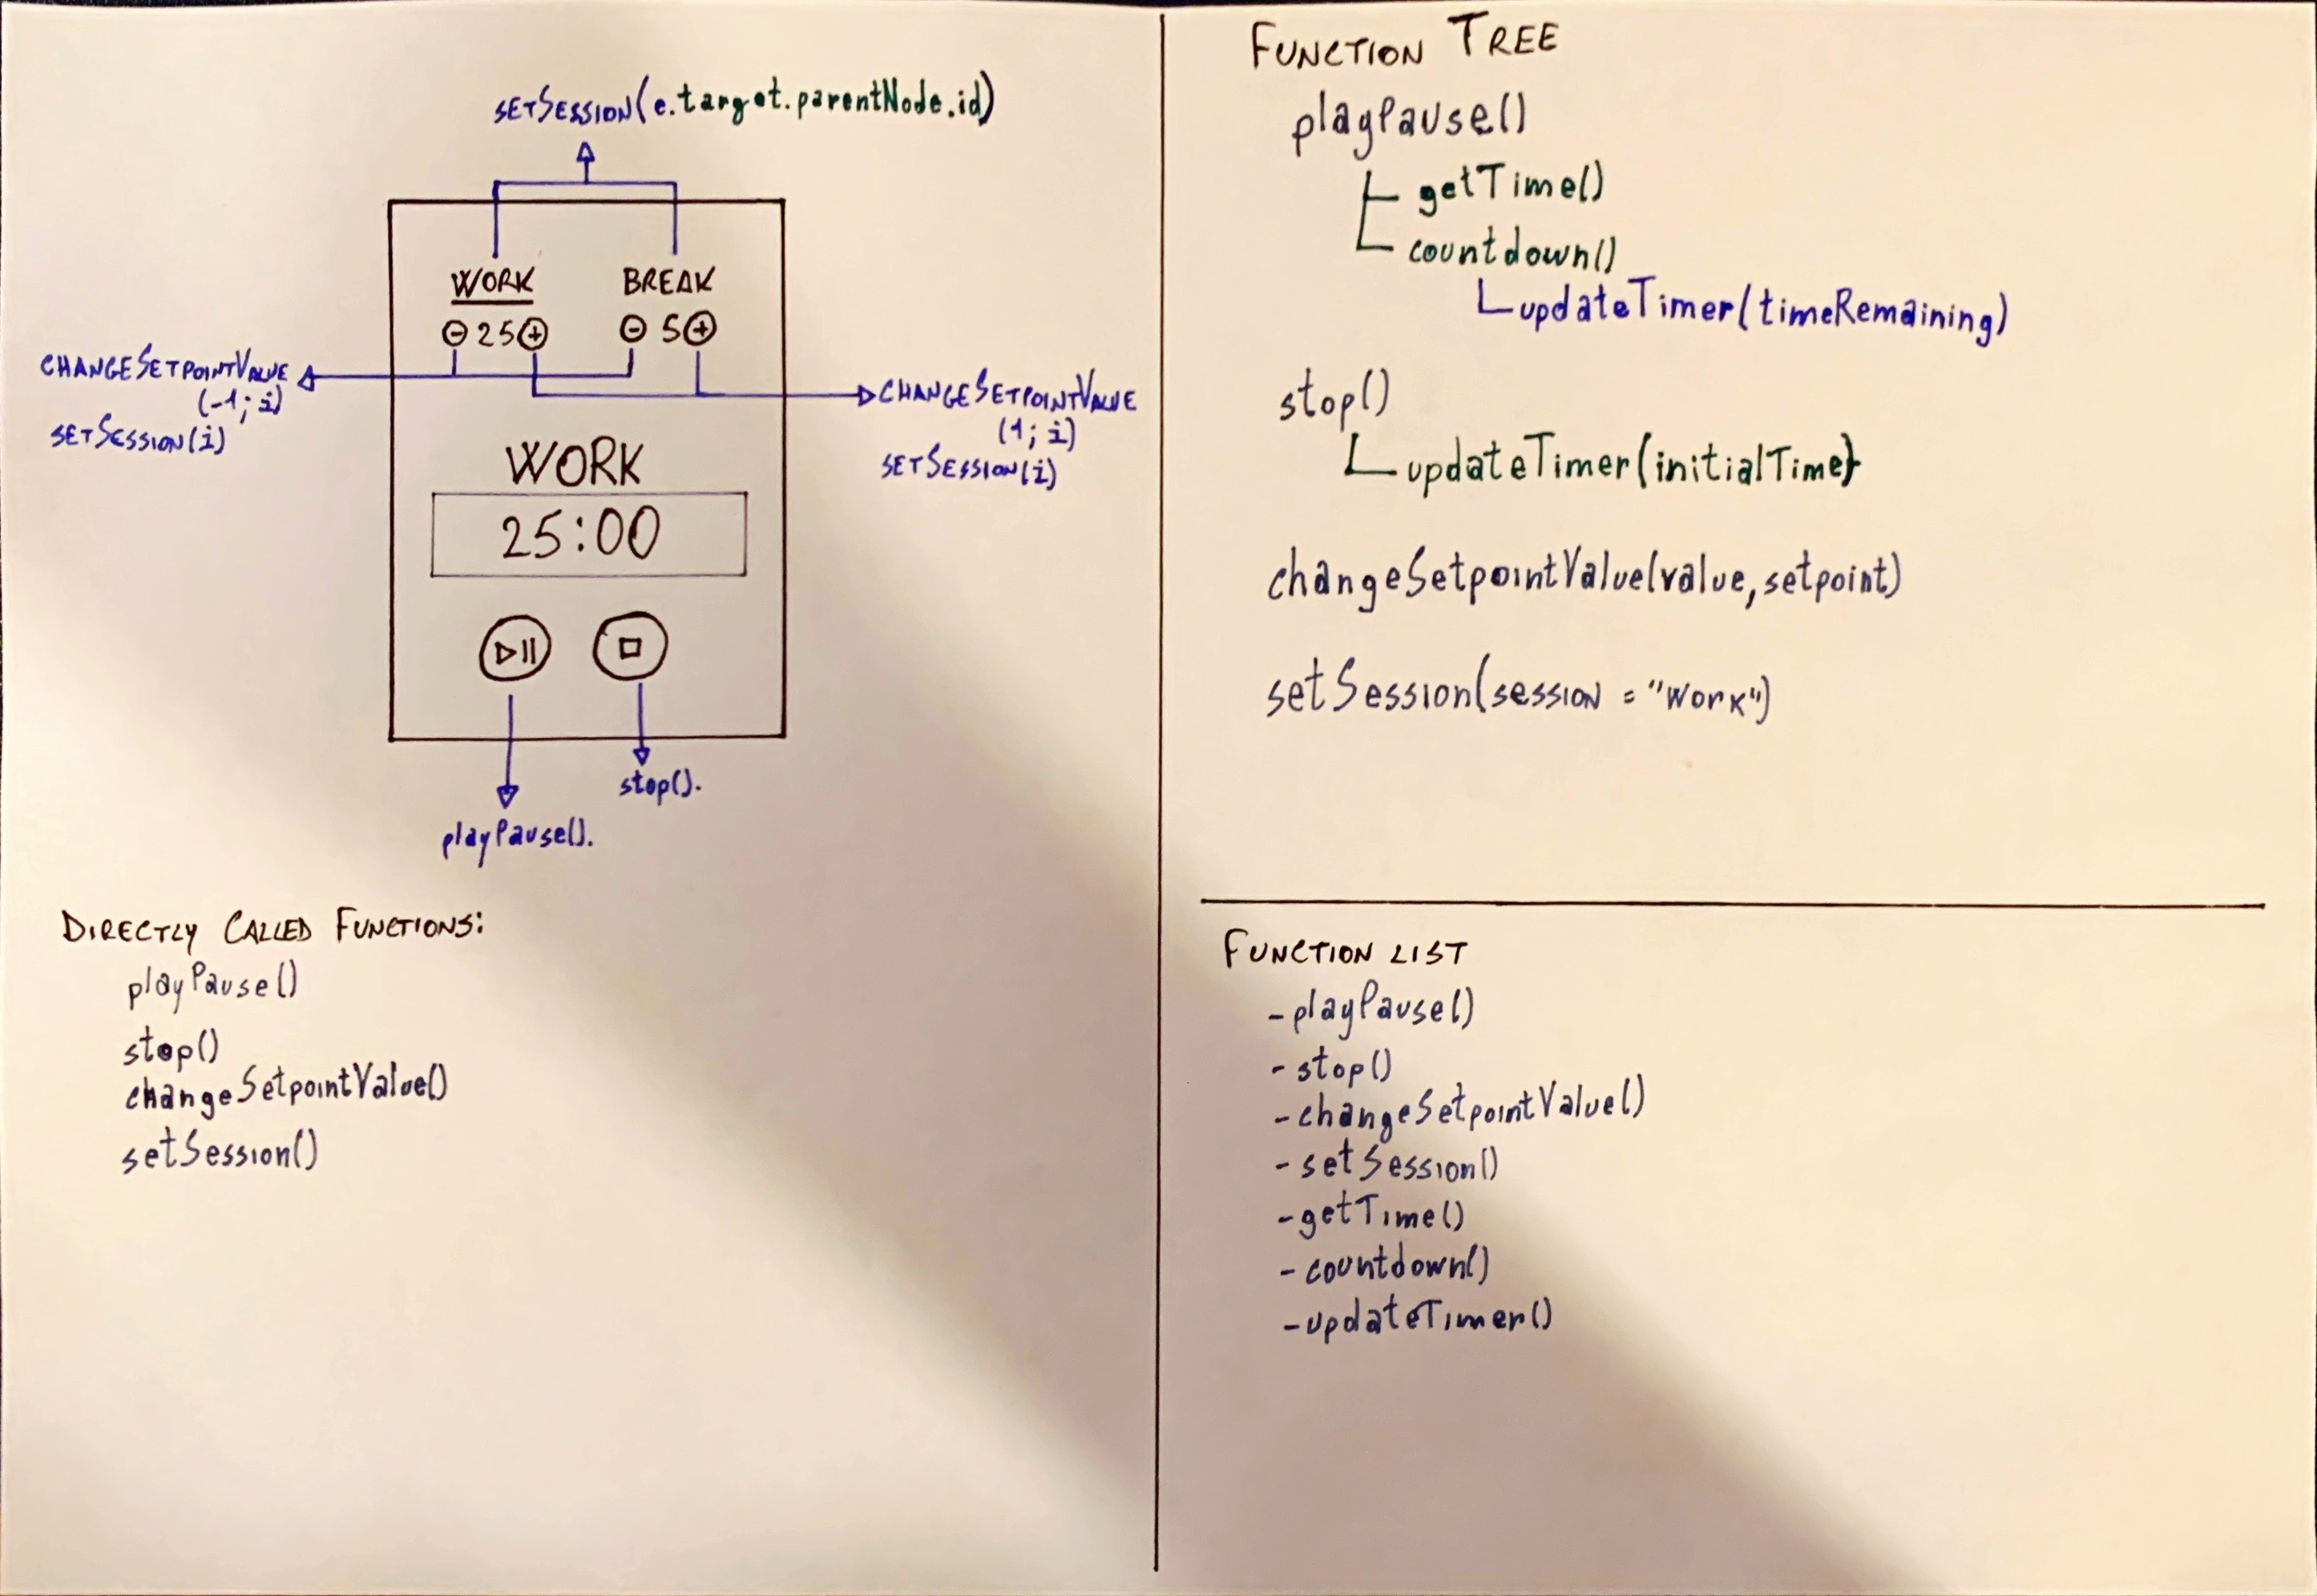 SETSESSION(e.target.parentNode.id)
WORK
BREAK
- 25 +
- 5 +
CHANGESETPOINTVALUE
(-1; i)
SETSESSION(i)
CHANGESETPOINTVALUE
(1; i)
SETSESSION(i)
WORK
25:00
stop().
playPause().
DIRECTLY CALLED FUNCTIONS:
playPause()
stop()
changeSetpointValue()
setSession()
FUNCTION TREE
playPause()
getTime()
countdown()
updateTimer(timeRemaining)
stop()
updateTimer(initialTime)
changeSetpointValue(value, setpoint)
setSession(session = "work")
FUNCTION LIST
- playPause()
- stop()
- changeSetpointValue()
- setSession()
- getTime()
- countdown()
- updateTimer()